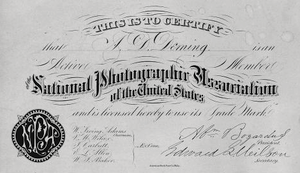 THIS IS TO CERTIFY
that S. D. Deming is an
Active Member
of the
National Photographic Association
of the United States
and is licensed hereby to use its Trade Mark.
NPA
W. Irving Adams
Chairman
E. L. Allen
Ex. Com.
Abm Bogardus
President
Edward L Wilson
Secretary